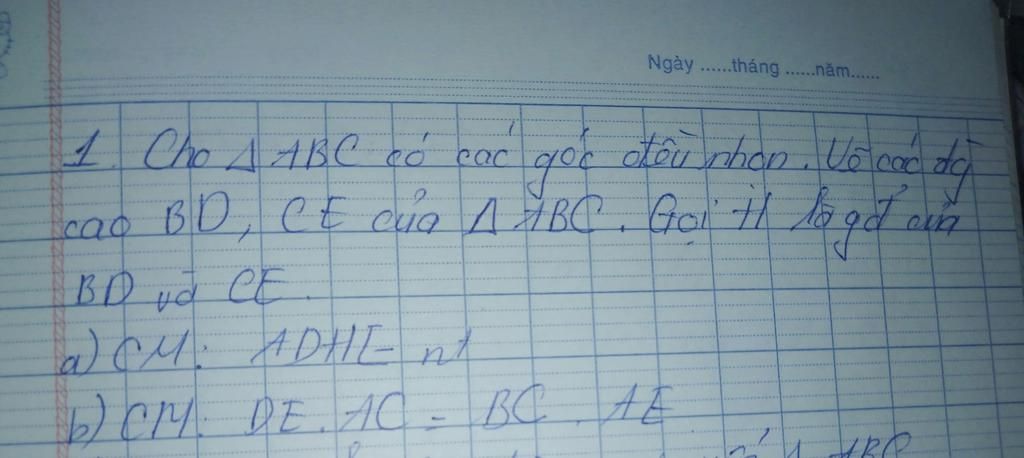 Ngày ......tháng ......năm......
1. Cho Δ ABC có các góc đều nhọn. Vẽ các đg
cao BD, CE của Δ ABC. Gọi H là gđ của
BD và CE.
a) CM: ADHE nt
b) CM: DE. AC = BC . AE
Δ ABC